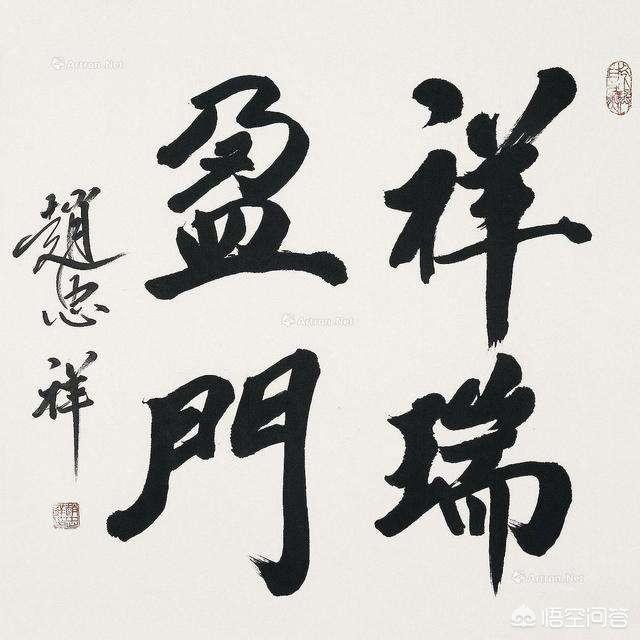 祥瑞
盈門
趙忠祥
Artron.Net
Artron.Net
Artron.Net
悟空问答